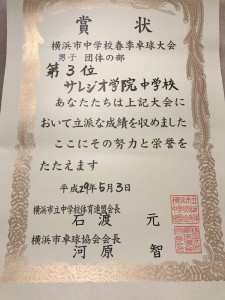 賞状
横浜市中学校春季卓球大会
男子 団体の部
第3位
サレジオ学院中学校
あなたたちは上記大会に
おいて立派な成績を収めました
ここにその努力と栄誉を
たたえます
平成29年5月3日
横浜市立中学校体育連盟会長
石渡 元
横浜市卓球協会会長
河原 智